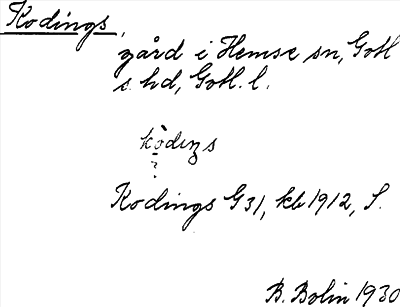 Kodings,
gård i Hemse sn, Gotl
s. hd, Gotl. l.
Kodings G31, kb 1912, S.
B. Bolin 1930